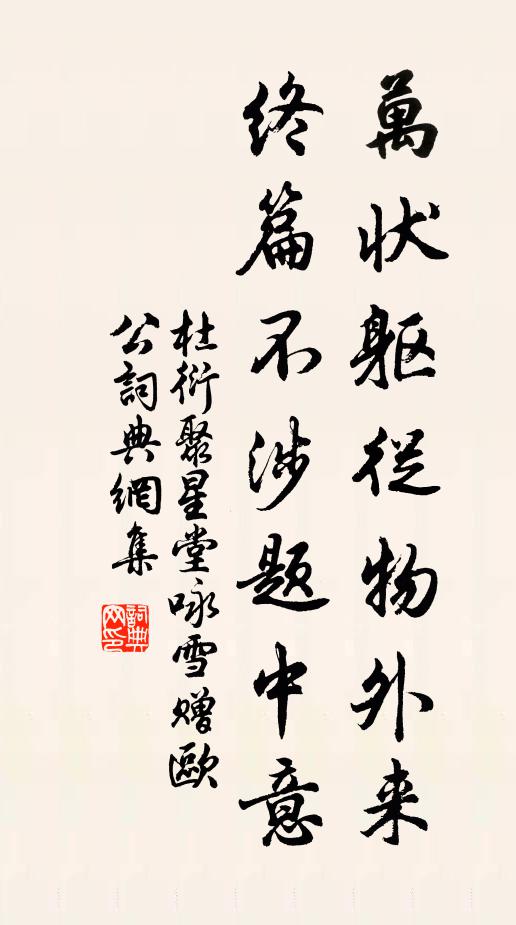 萬状軀從物外来
終篇不涉题中意
杜衍聚星堂咏雪赠歐
公詞典網集
詞典网印